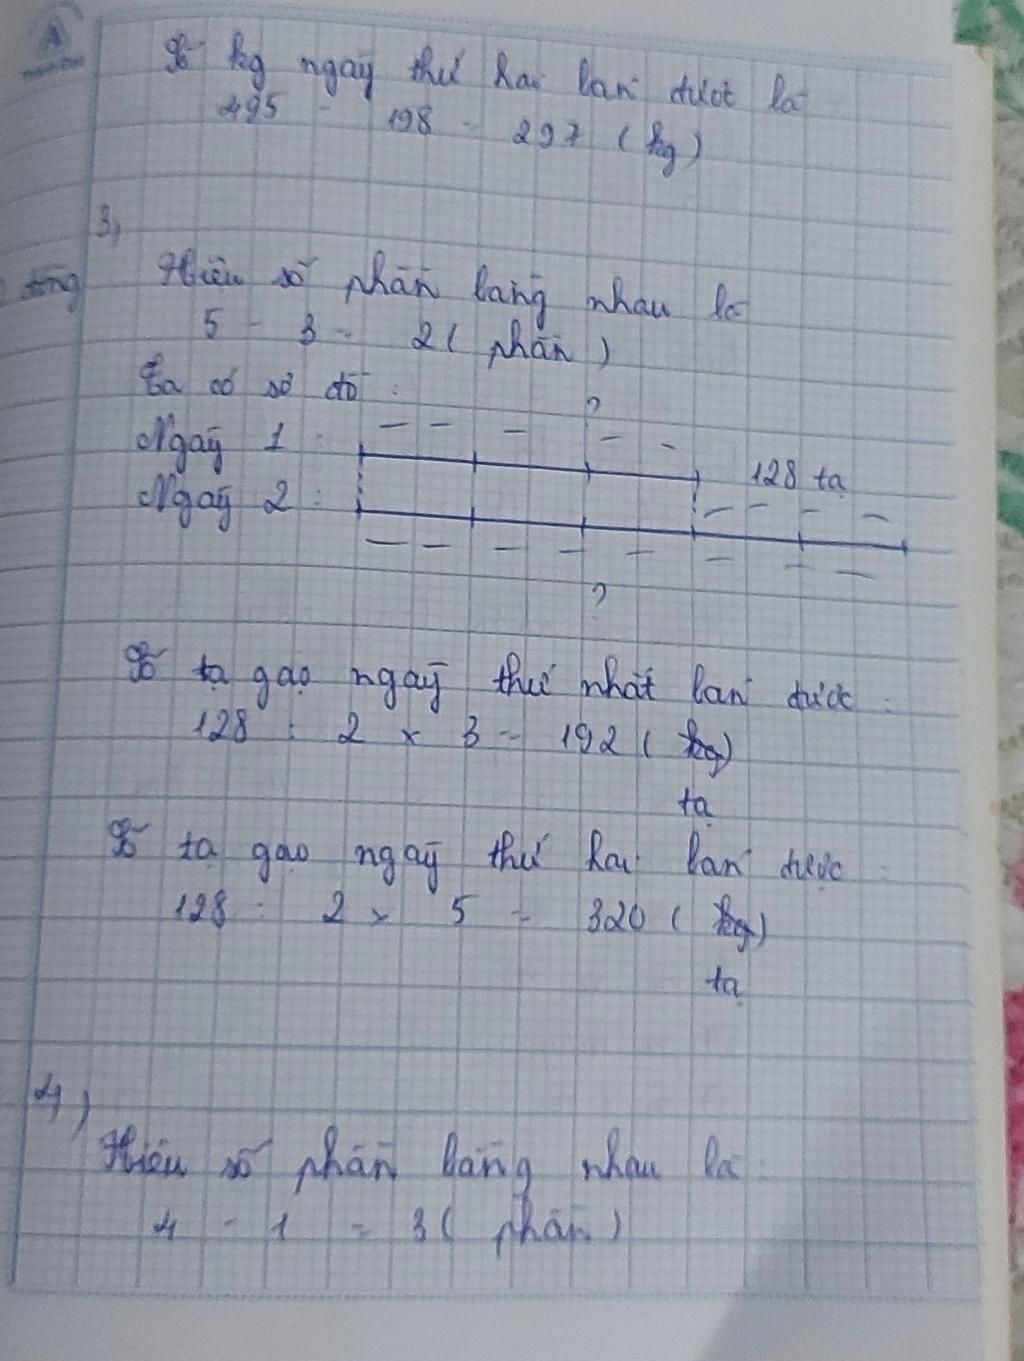 Số kg ngày thứ hai bán được là
495 - 198 = 297 (kg)
3,
tổng
Hiệu số phần bằng nhau là
5 - 3 = 2 (phần)
Ta có sơ đồ :
?
Ngày 1 :
128 tạ
Ngày 2 :
?
Số tạ gạo ngày thứ nhất bán được :
128 : 2 x 3 = 192 (kg)
tạ
Số tạ gạo ngày thứ hai bán được :
128 : 2 x 5 = 320 (kg)
tạ
4)
Hiệu số phần bằng nhau là
4 - 1 = 3 (phần)